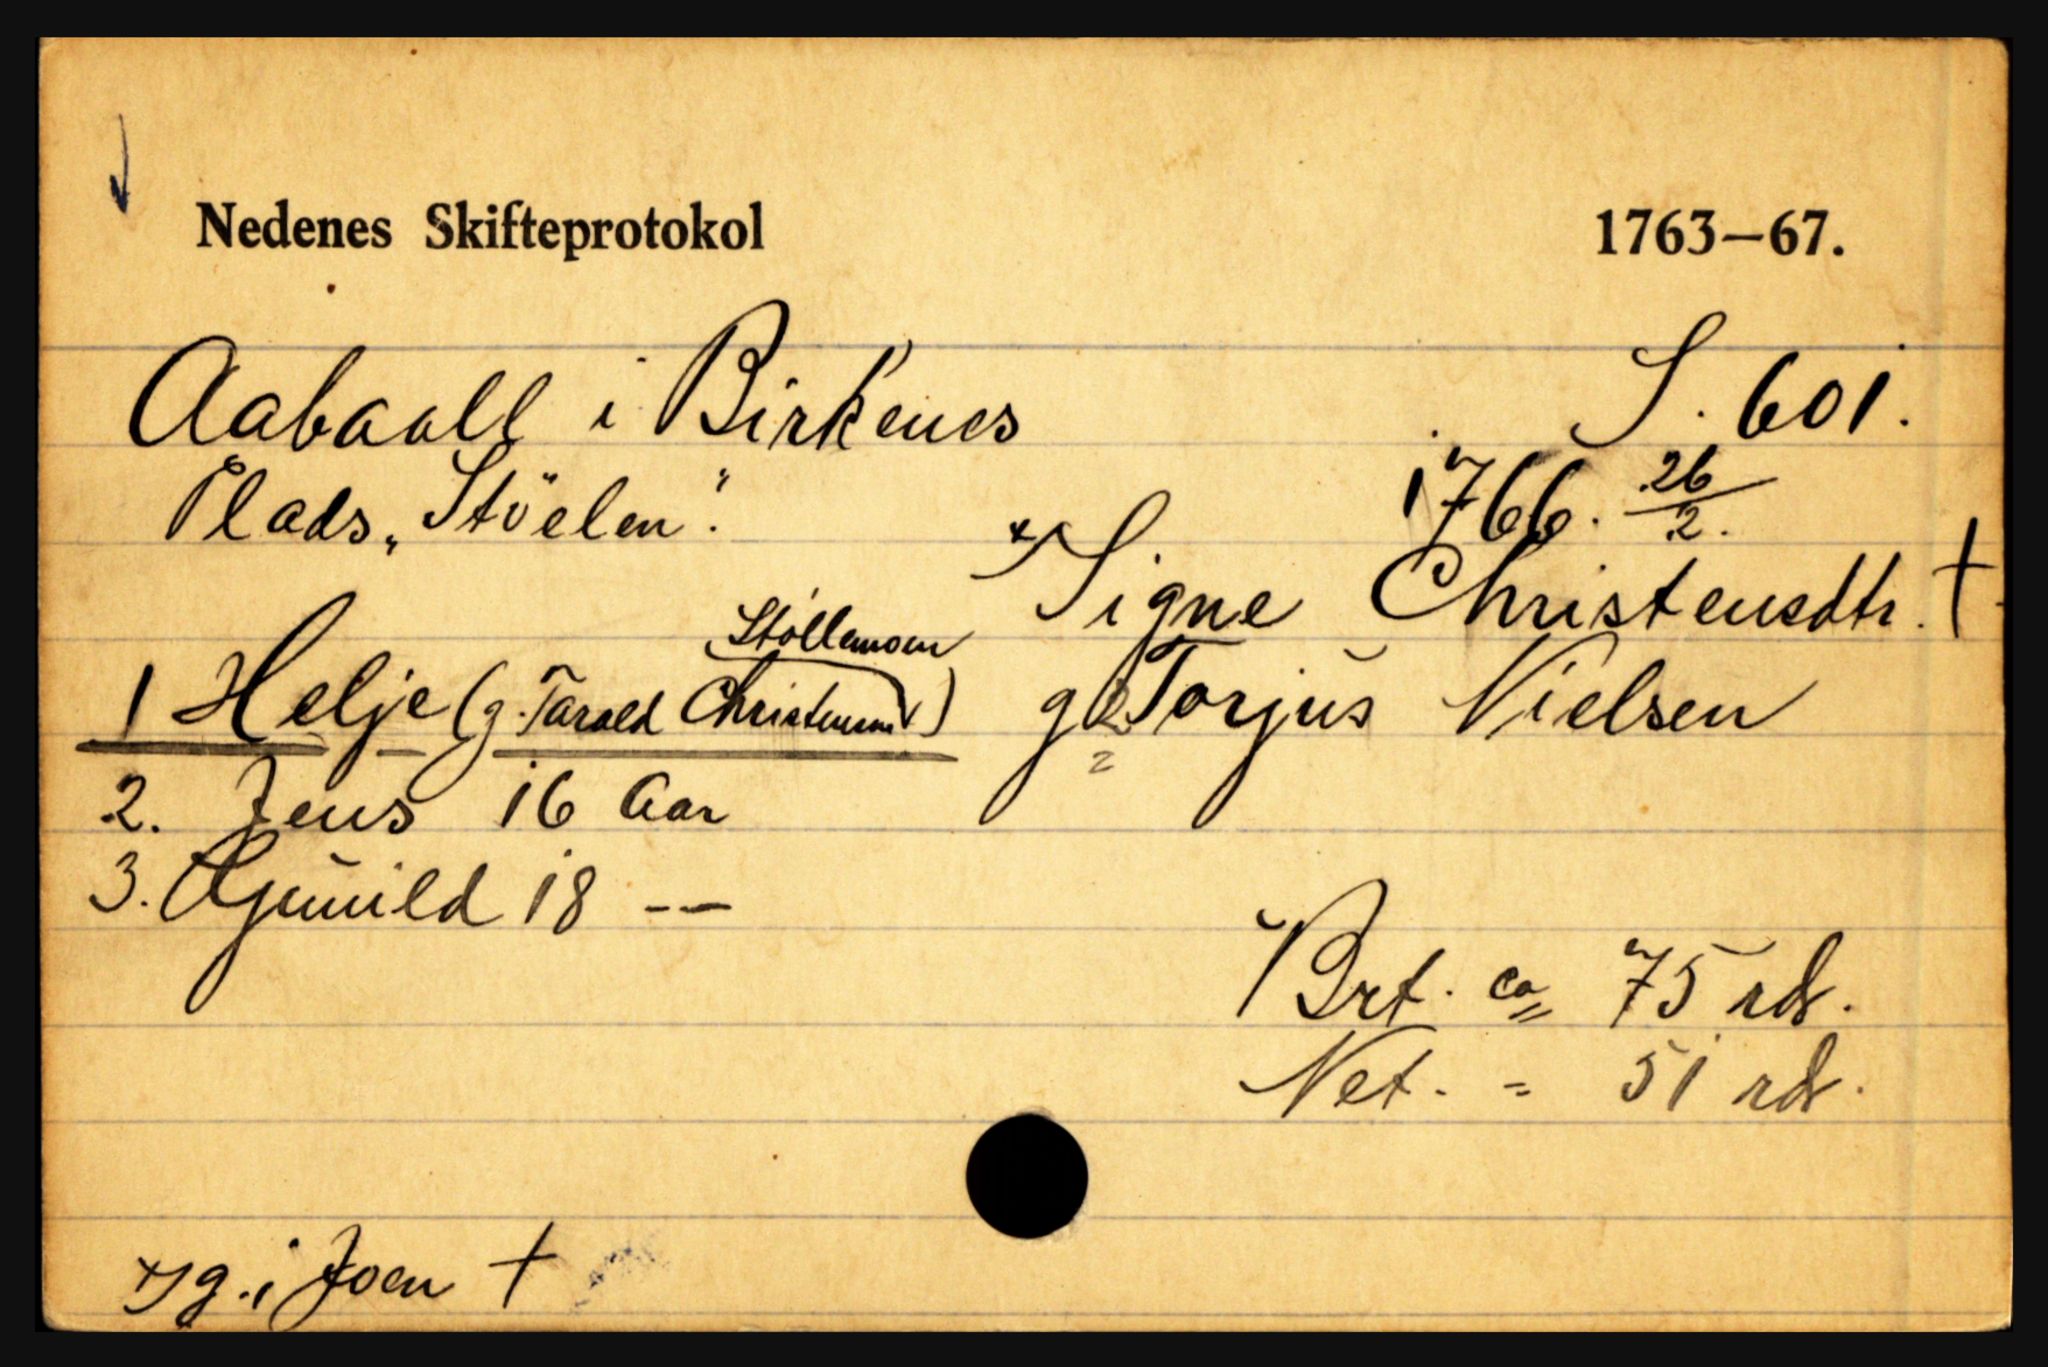 Nedenes Skifteprotokol 1763—67.
Aabaall i Birkenes S. 601.
Plads „Stöelen". 1766. 26/2.
*Signe Christensdtr. †
Støllemoen
1 Helje (g. Tarald Christensen) g 2 Torjus Nielsen
2. Jens 16 Aar
3. Gunild 18 — —
Brt. ca 75 rdr.
Net. = 51 rdr.
*) g. i Joen †